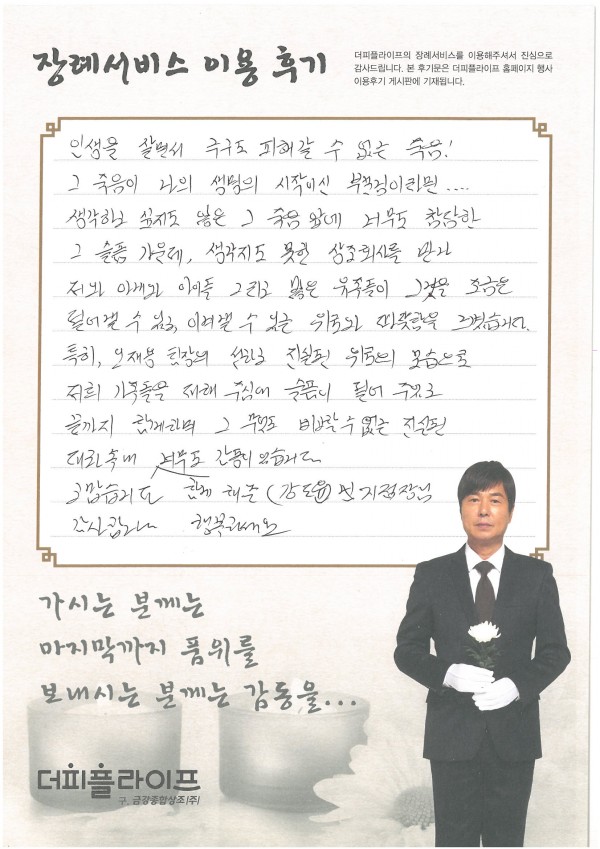 장례서비스 이용 후기
더피플라이프의 장례서비스를 이용해주셔서 진심으로
감사드립니다. 본 후기문은 더피플라이프 홈페이지 행사
이용후기 게시판에 기재됩니다.
인생을 살면서 누구도 피해갈 수 없는 죽음!
그 죽음이 나의 생명의 시작이신 부모님이라면....
생각하고 싶지도 않은 그 죽음 앞에 너무도 참담한
그 슬픔 가운데, 생각지도 못한 상조회사를 만나
저와 아내와 아이들 그리고 많은 유족들이 그것을 조금은
덜어낼 수 있고, 이겨낼 수 있는 위로와 따뜻함을 느꼈습니다.
특히, 팀장의 진실된 위로의 모습으로
저희 가족들을 대해 주심에 슬픔이 덜어 주었고
끝까지 함께하며 그 무엇도 비교할 수 없는 진실된
너무도 감동이었습니다
고맙습니다 함께 해준 지점장님
감사합니다 행복하세요
가시는 분께는
마지막까지 품위를
보내시는 분께는 감동을...
더피플라이프
구. 금강종합상조(주)